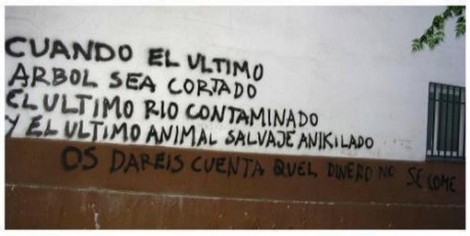 CUANDO EL ULTIMO
ARBOL SEA CORTADO
EL ULTIMO RIO CONTAMINADO
Y EL ULTIMO ANIMAL SALVAJE ANIKILADO
OS DAREIS CUENTA QUEL DINERO NO SE COME